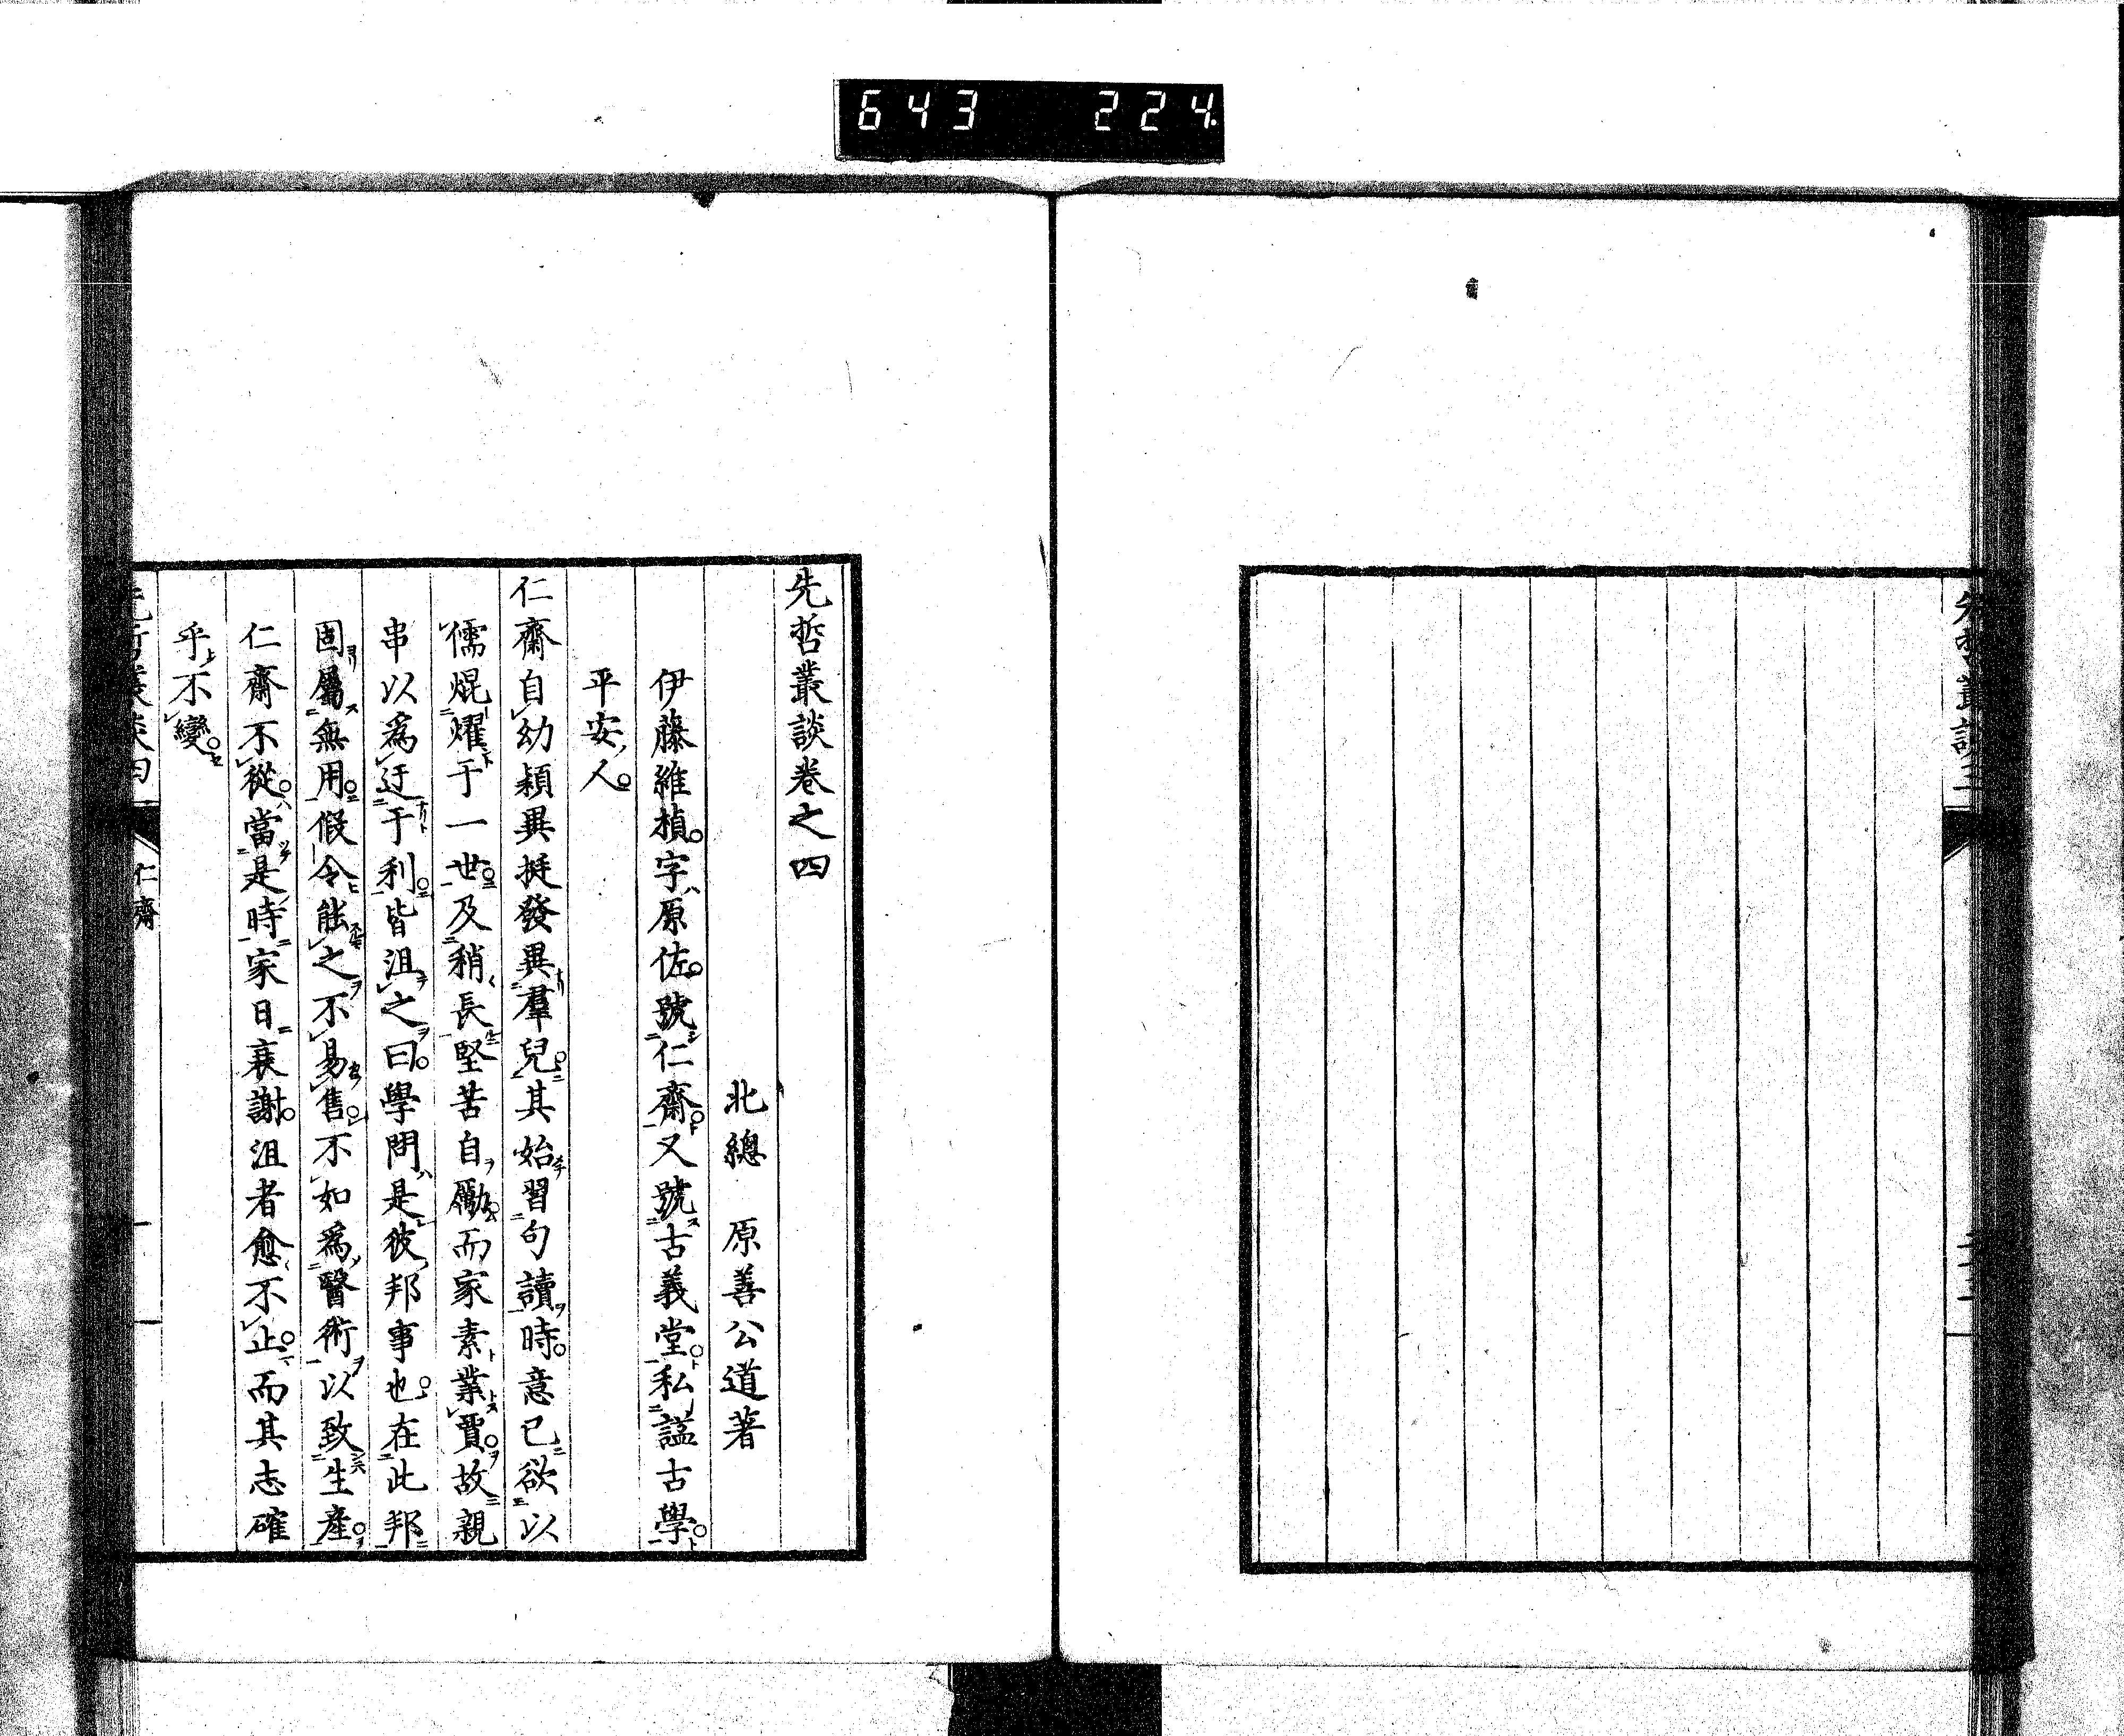 643 224
先哲叢談三
先哲叢談卷之四
北總 原善公道著
伊藤維楨字原佐號仁齋又號古義堂私諡古學
平安人
仁齋自幼穎異挺發異羣兒其始習句讀時意已欲以
儒焜燿于一世及稍長堅苦自勵而家素業賈故親
串以爲迂于利皆沮之曰學問是彼邦事也在此邦
固屬無用假令能之不易售不如爲醫術以致生產
仁齋不從當是時家日衰謝沮者愈不止而其志確
乎不變
仁齋